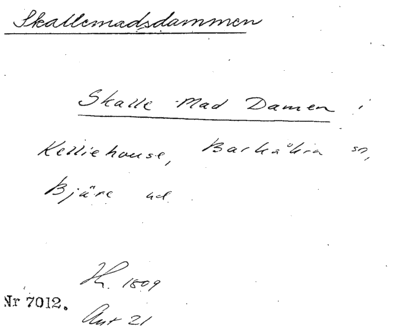 Skallemadsdammen
Skalle Mad Damen i
Kelliehouse, Barkåkra sn,
Bjäre hd
H. 1809
Nr 7012.
Akt 21